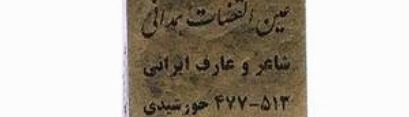 عین القضات همدانی
شاعر و عارف ایرانی
۴۷۷-۵۱۳ خورشیدی